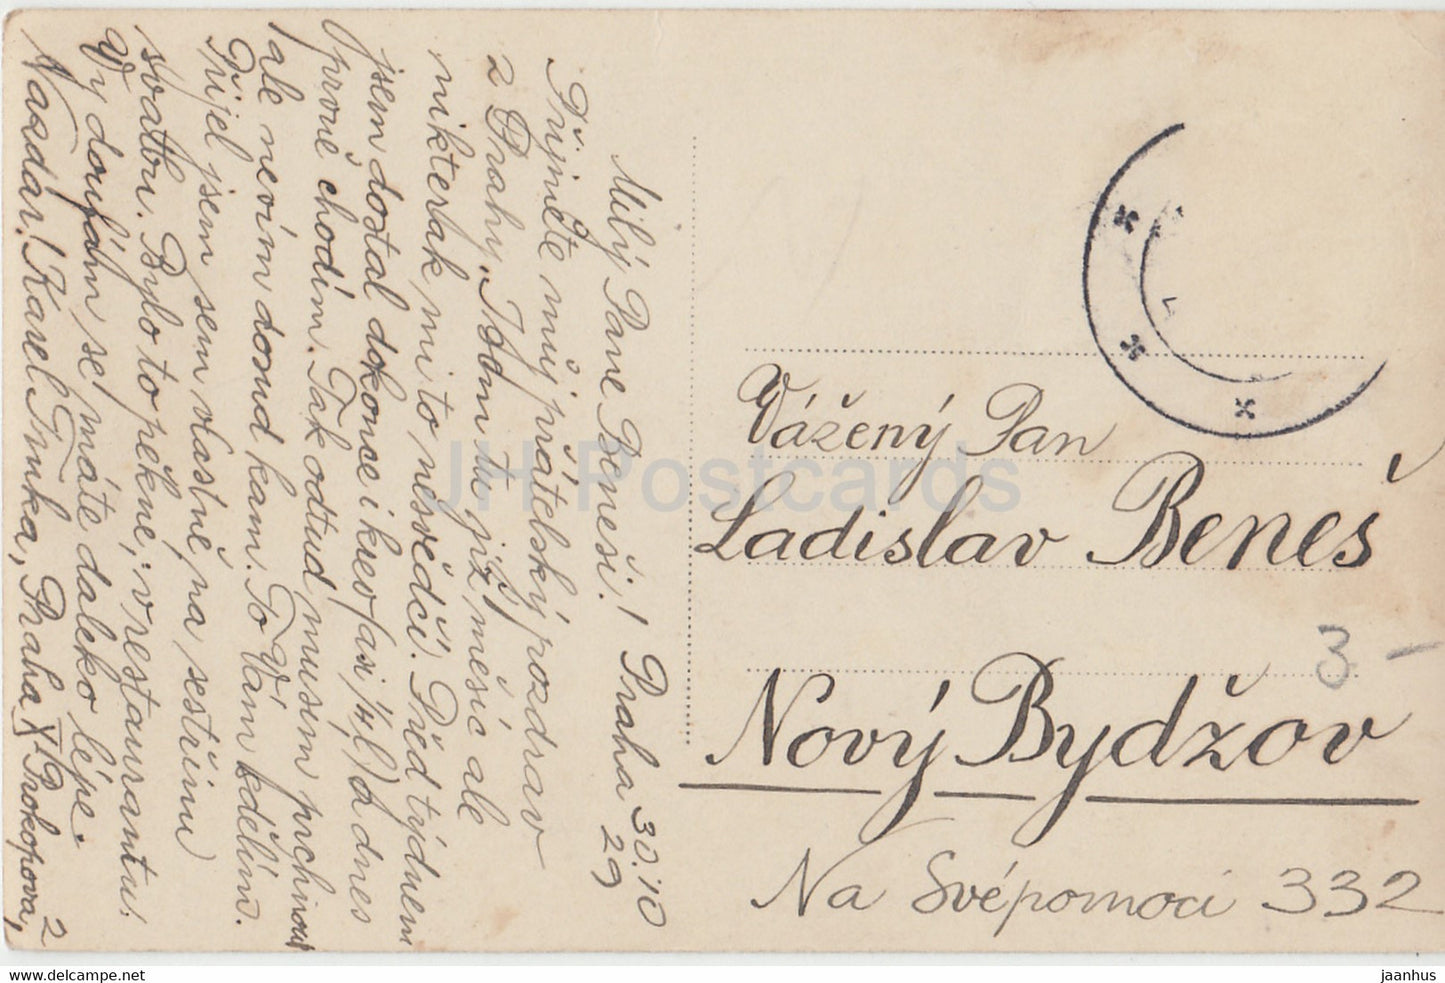 Milý Pane Beneši! Praha 30.10
29
Přijměte můj přátelský pozdrav
z Prahy. Jsem tu již měsíc ale
nikterak mi to nesvědčí. Před týdnem
jsem dostal dokonce i krev (asi 1/4 l) a dnes
prvně chodím. Tak odtud musím prchnout
ale nevím dosud kam. To Vám sdělím.
Přijel jsem sem vlastně na sestřinu
svatbu. Bylo to pěkné, v restaurantu.
Vy doufám se máte daleko lépe.
Nazdar! Karel Trnka, Praha XI Prokopova,
2
Vážený Pan
Ladislav Beneš
Nový Bydžov
Na Svépomoci 332
3 -
JH Postcards
https://jhpostcards.com
jaanhus